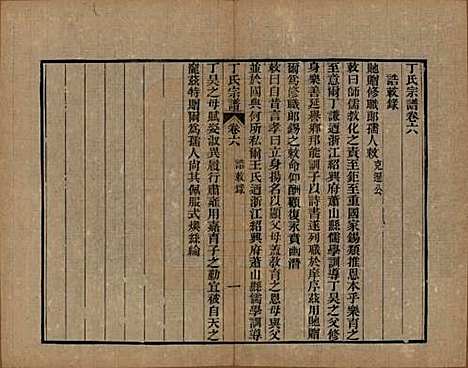 丁氏宗譜卷六
誥敕錄
馳贈修職郎孺人敕 克遜公
敕曰師儒教化之責至鉅至重國家錫類推恩本乎樂育之
至意爾丁謙迺浙江紹興府蕭山縣儒學訓導丁昊之父
身樂善廷譽鄉邦能訓子以詩書遂列職於庠序茲用馳贈
爾爲修職郎錫之敕命仰酬顧復永賁幽潛
敕曰自昔言孝曰立身揚名以顯父母蓋教育之恩母與父
並於國典何所私爾王氏迺浙江紹興府蕭山縣儒學訓導
丁氏宗譜 卷六 誥敕錄 一
丁昊之母賦姿淑異履行肅雝用嘉育子之勤宜被自天之
寵茲特贈爾爲孺人尚其佩服式煥絲綸